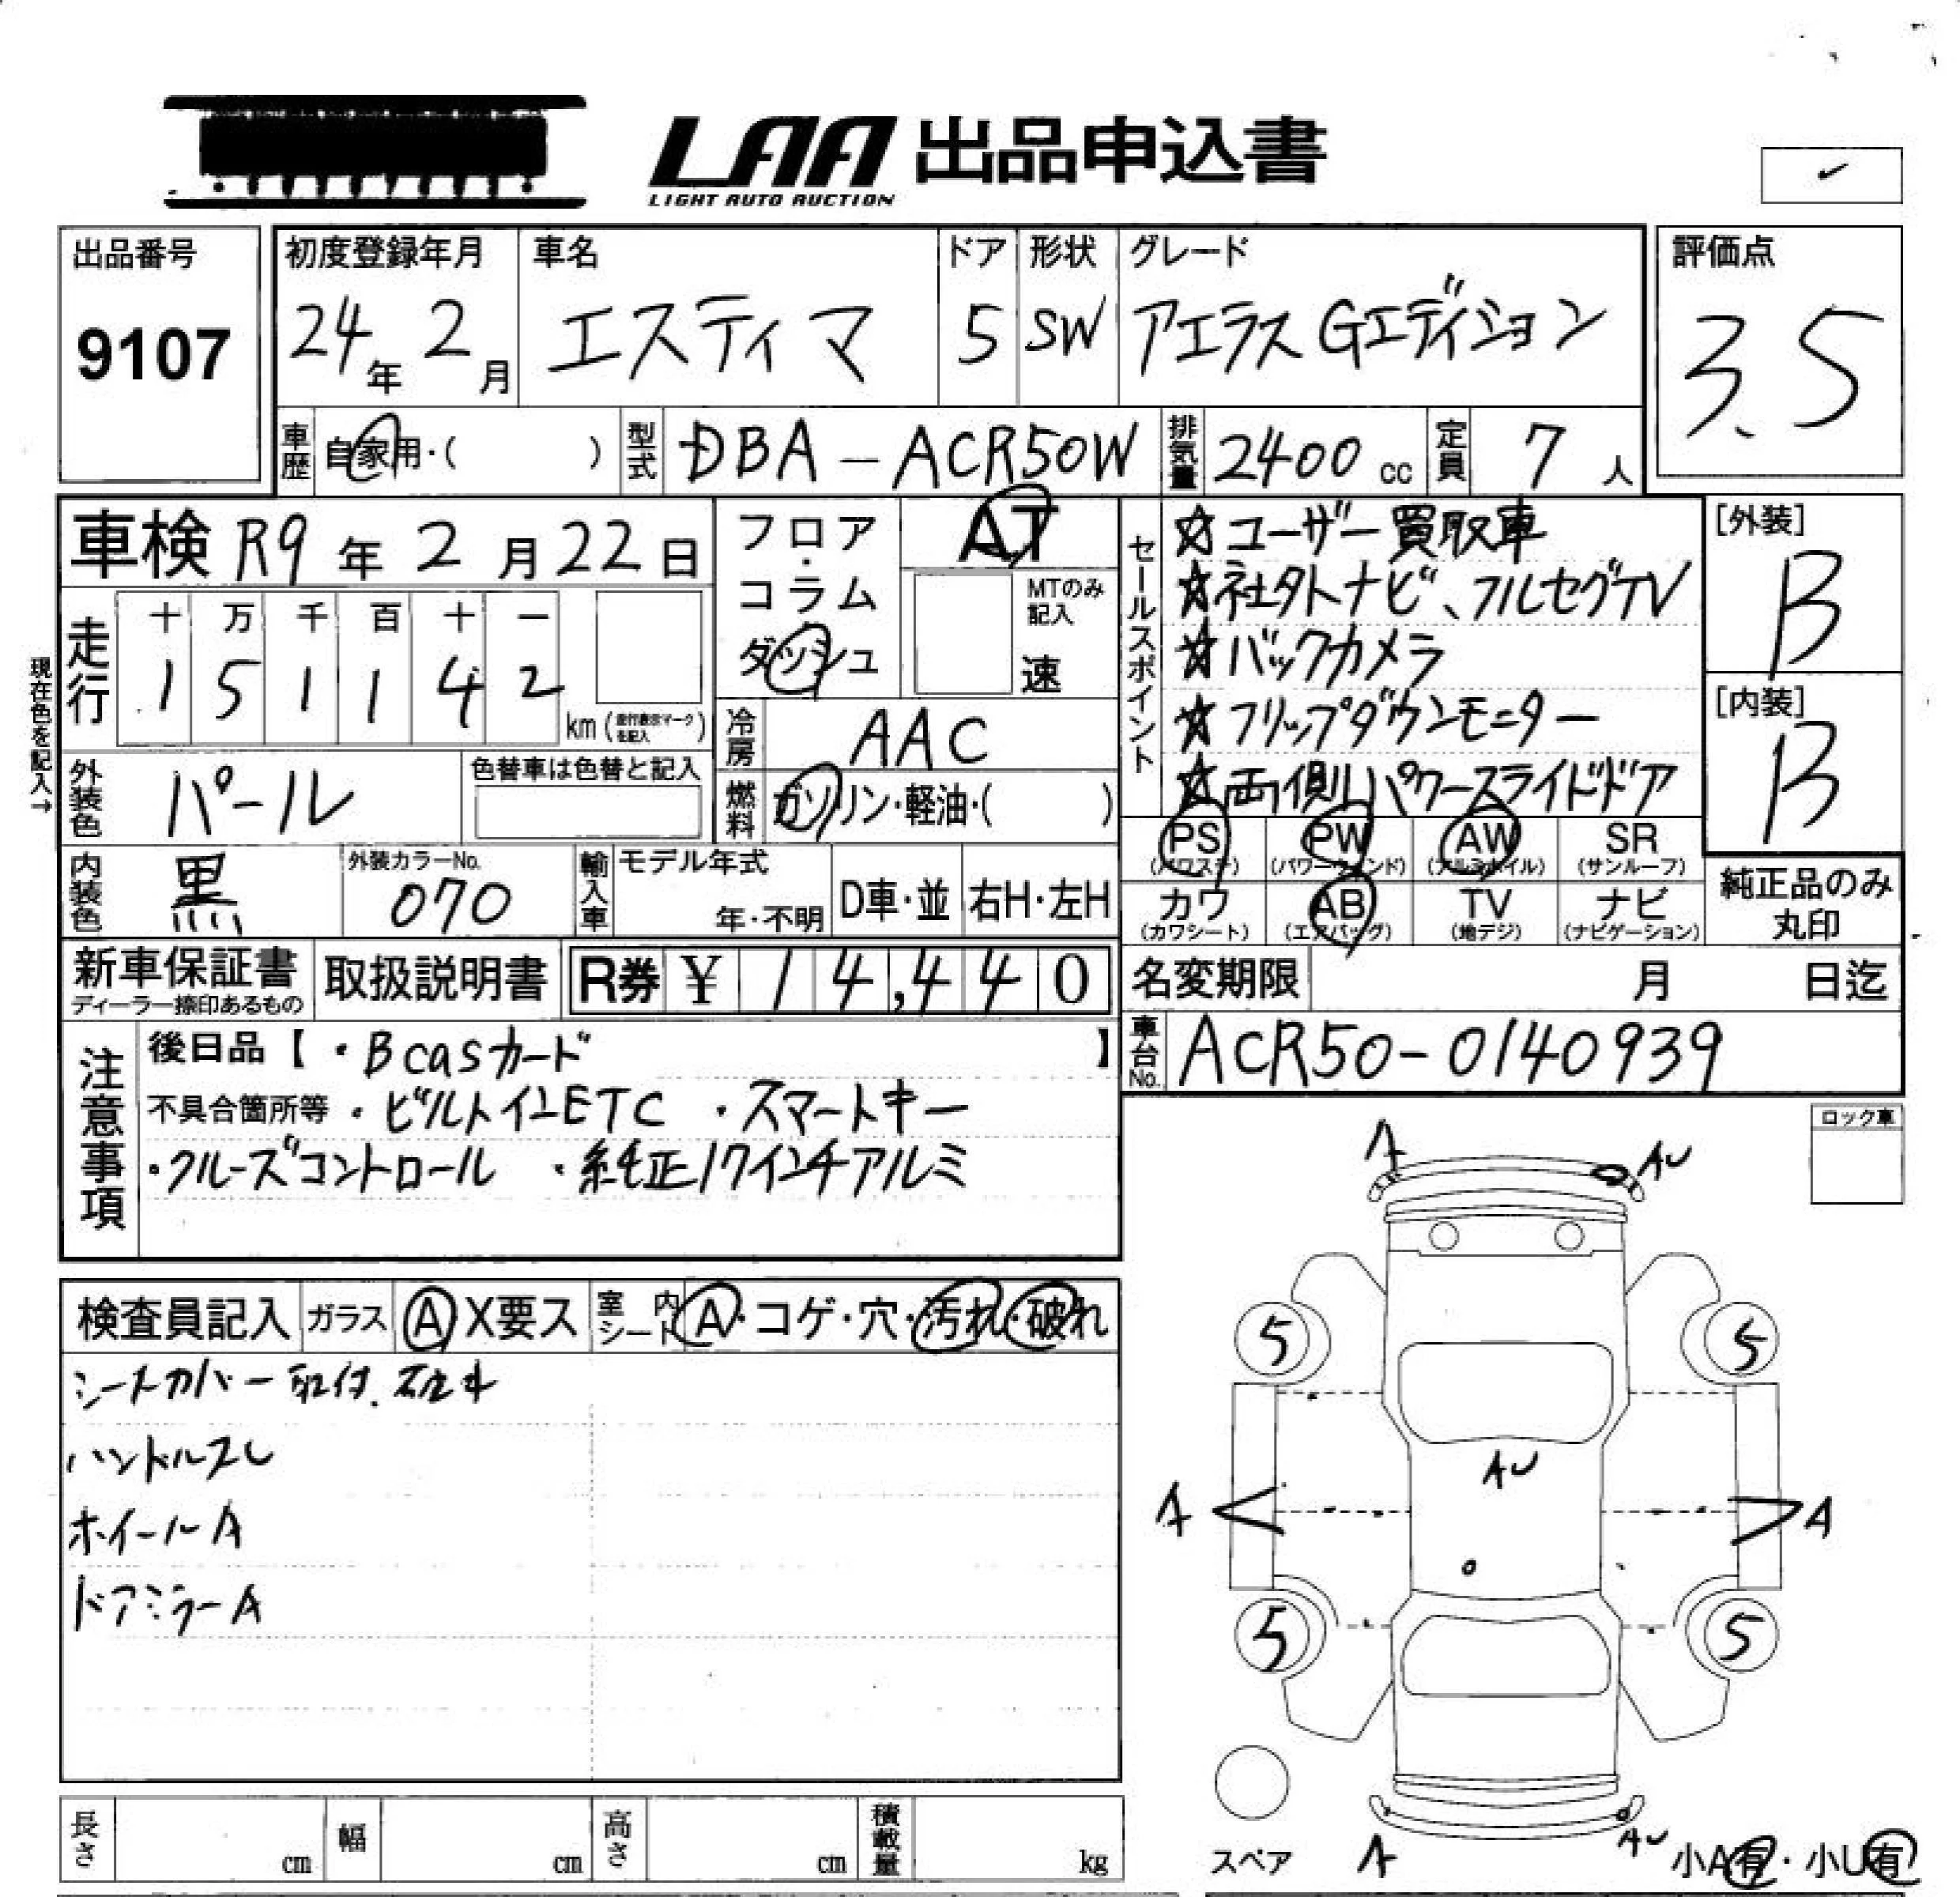 LAA 出品申込書
LIGHT AUTO AUCTION
出品番号
9107
初度登録年月
24年 2月
車名
エスティマ
ドア
5
形状
SW
グレード
アエラス Gエディション
評価点
3.5
車歴 自家用・( )
型式 DBA-ACR50W
排気量 2400 cc
定員 7 人
車検 R9年 2月 22日
フロア・コラム・ダッシュ
AT
MTのみ記入
速
セールスポイント
☆ユーザー買取車
☆社外ナビ、フルセグTV
☆バックカメラ
☆フリップダウンモニター
☆両側パワースライドドア
[外装]
B
[内装]
B
現在色を記入→
走行
十 万 千 百 十 一
1 5 1 1 4 2
km (走行表示マークを記入)
冷房 AAC
燃料 ガソリン・軽油・( )
外装色 パール
色替車は色替と記入
内装色 黒
外装カラーNo.
070
輸入車
モデル年式
年・不明
D車・並
右H・左H
PS (パワステ)
PW (パワーウィンド)
AW (アルミホイル)
SR (サンルーフ)
カワ (カワシート)
AB (エアバッグ)
TV (地デジ)
ナビ (ナビゲーション)
純正品のみ
丸印
新車保証書
ディーラー捺印あるもの
取扱説明書
R券 ¥ 14,440
名変期限 月 日迄
車台No. ACR50-0140939
注意事項
後日品【 ・Bcasカード 】
不具合箇所等 ・ビルトインETC ・スマートキー
・クルーズコントロール ・純正17インチアルミ
ロック車
A AU
5 5
AU
A A
5 5
検査員記入 ガラス A X要ス 室内シート A・コゲ・穴・汚れ・破れ
シートカバー取付.
ハンドルスレ
ホイールA
ドアミラーA
長さ cm
幅 cm
高さ cm
積載量 kg
スペア
A AU
小A有・小U有